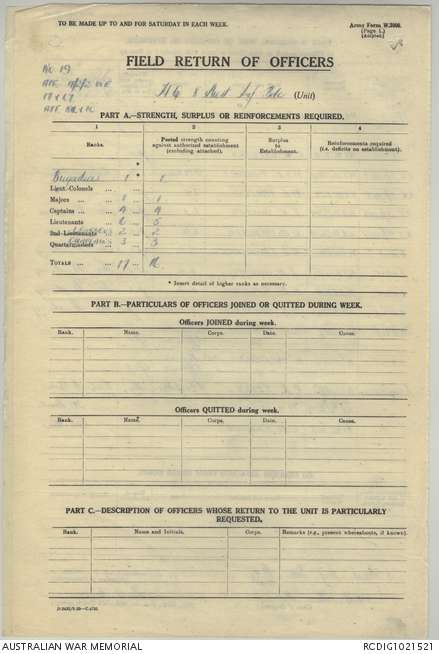 TO BE MADE UP TO AND FOR SATURDAY IN EACH WEEK.
Army Form W.3008.
(Page 1.)
(Adapted)
FIELD RETURN OF OFFICERS
No 19
HQ 8 Aust Inf Bde (Unit)
PART A.—STRENGTH, SURPLUS OR REINFORCEMENTS REQUIRED.
1 2 3 4
Ranks. Posted strength counting against authorized establishment (excluding attached). Surplus to Establishment. Reinforcements required (i.e. deficits on establishment).
*
Brigadier 1 * 1
Lieut.-Colonels
Majors ... 1 1
Captains ... 4 4
Lieutenants 5
2nd-Lieutenants 2 2
Quartermasters 3 3
TOTALS ... 17
* Insert detail of higher ranks as necessary.
PART B.—PARTICULARS OF OFFICERS JOINED OR QUITTED DURING WEEK.
Officers JOINED during week.
Rank. Name. Corps. Date. Cause.
Officers QUITTED during week.
Rank. Name. Corps. Date. Cause.
PART C.—DESCRIPTION OF OFFICERS WHOSE RETURN TO THE UNIT IS PARTICULARLY
REQUESTED.
Rank. Name and Initials. Corps. Remarks (e.g., present whereabouts, if known).
AUSTRALIAN WAR MEMORIAL
RCDIG1021521